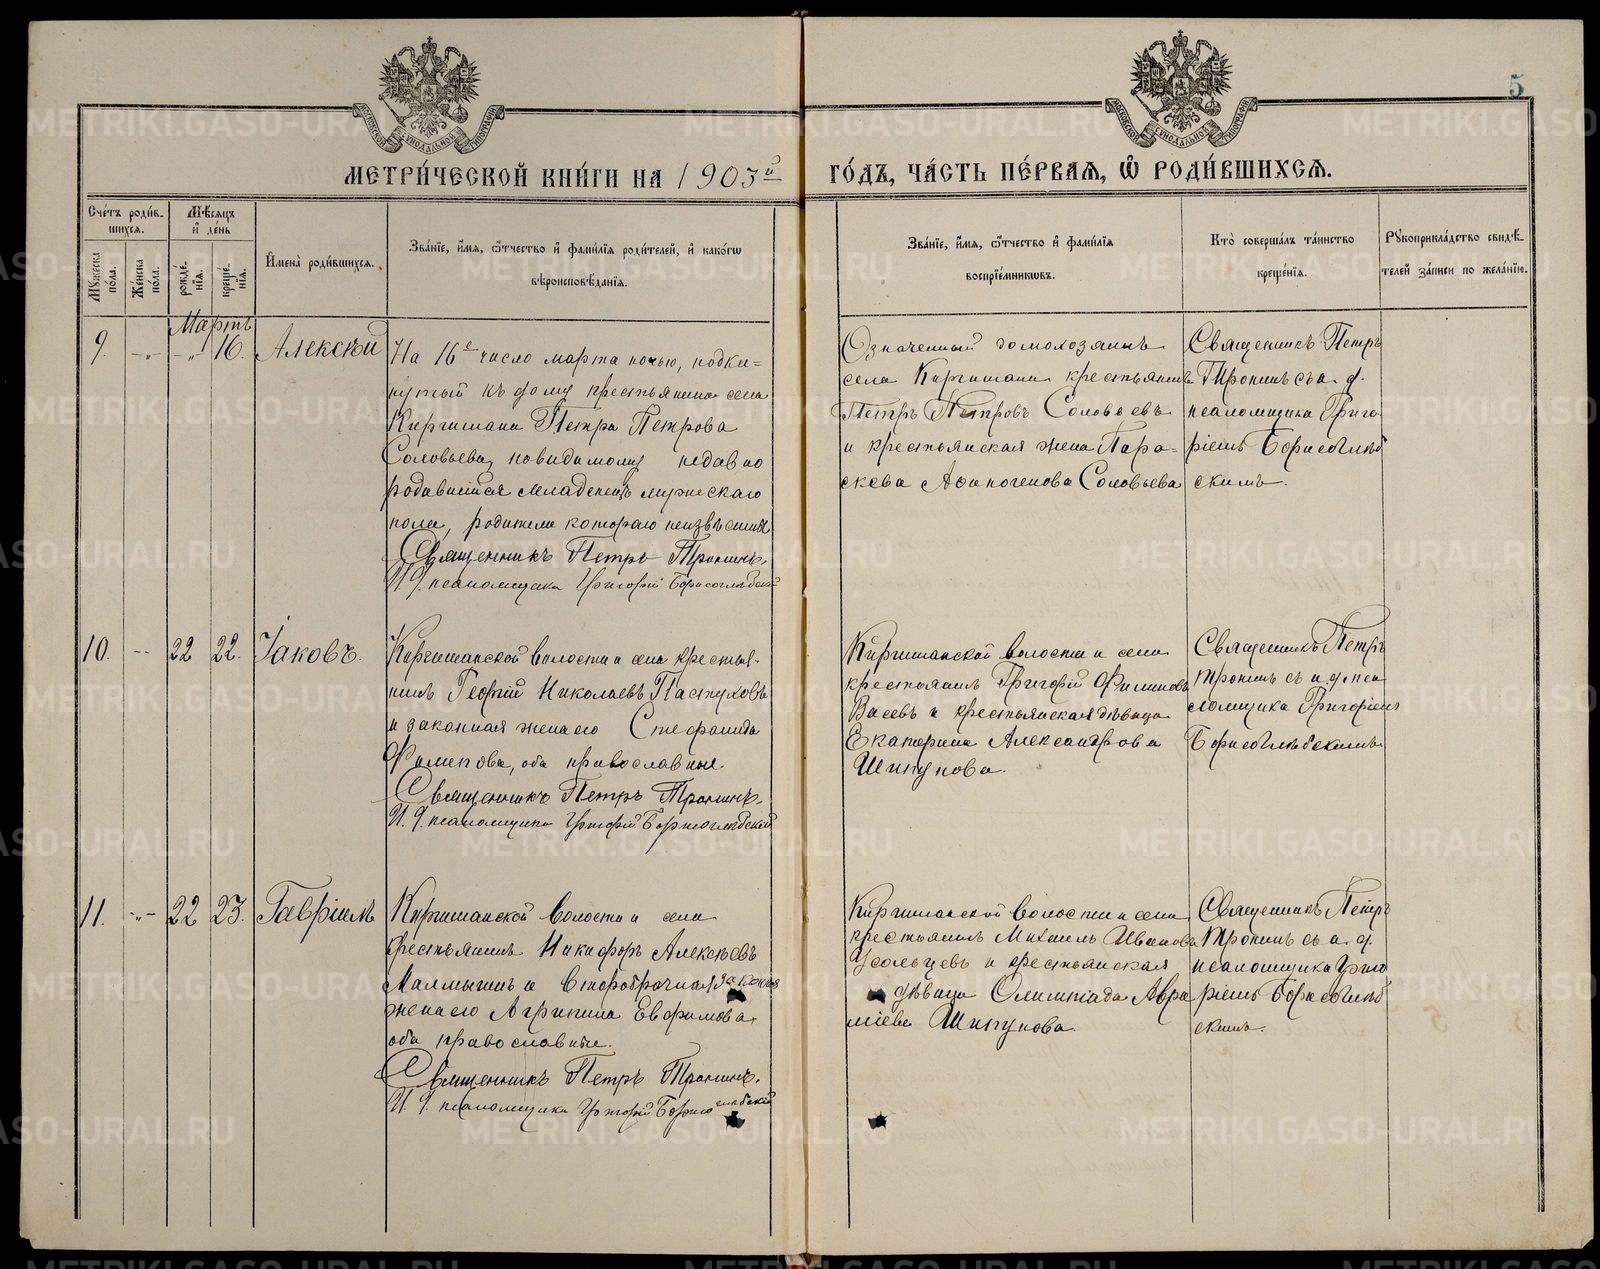 5
МЕТРИ́ЧЕСКОЙ КНИ́ГИ НА 1903й ГО́ДЪ, ЧА́СТЬ ПЕ́РВАЯ, Ѿ РОДИ́ВШИХСЯ.
Сче́тъ роди́в-
шихся.
Мѣ́сяцъ
и҆ де́нь
Мꙋ́жеска по́ла.
Же́нска по́ла.
рожде́-
нїя.
креще́-
нїя.
И҆мена̀ роди́вшихся.
Зва́нїе, и҆́мя, ѻ҆́тчество и҆ фами́лїя роди́телей, и҆ како́гѡ
вѣроисповѣ́данїя.
Зва́нїе, и҆́мя, ѻ҆́тчество и҆ фами́лїя
воспрїе́мникѡвъ.
Кто̀ соверша́лъ та́инство
креще́нїя.
Рꙋкоприкла́дство свидѣ́-
телей за́писи по жела́нїю.
Мартъ
9.
-„-
-„-
16.
Алексѣй
На 16е число марта ночью, подки=
нутый къ дому крестьянина села
Киргишани Петра Петрова
Соловьева, повидимому недавно
родившійся младенецъ мужескаго
пола, родители котораго неизвѣстны
Священникъ Петръ Тронинъ.
И. д. псаломщика Григорій Борисоглѣбскій
Означенный домохозяинъ
села Киргишани крестьянинъ
Петръ Петровъ Соловьевъ
и крестьянская жена Пара-
скева Афиногенова Соловьева
Священникъ Петръ
Тронинъ съ и. д.
псаломщика Григо
ріемъ Борисоглѣб
скимъ.
10.
--
22
22.
Іаковъ.
Киргишанской волости и села крестья-
нинъ Георгій Николаевъ Пастуховъ
и законная жена его Стефанида
Филипова, оба православные.
Священникъ Петръ Тронинъ.
И. д. псаломщика Григорій Борисоглѣбскій
Киргишанской волости и села
крестьянинъ Григорій Филиповъ
Васевъ и крестьянская дѣвица
Екатерина Александрова
Шипунова.
Священникъ Петръ
Тронинъ съ и. д. пса
ломщика Григоріемъ
Борисоглѣбскимъ
11.
-„-
22
23.
Гавріилъ
Киргишанской волости и села
крестьянинъ Никифоръ Алексѣевъ
Малмыгинъ и второбрачная законная
жена его Агрипина Евфимова,
оба православные.
Священникъ Петръ Тронинъ.
И. д. псаломщика Григорій Борисоглѣбскій
Киргишанской волости и села
крестьянинъ Михаилъ Ивановъ
Усольцевъ и крестьянская
дѣвица Олимпіада Авра
міева Шипунова.
Священникъ Петръ
Тронинъ съ и. д.
псаломщика Григо
ріемъ Борисоглѣб
скимъ.
METRIKI.GASO-URAL.RU